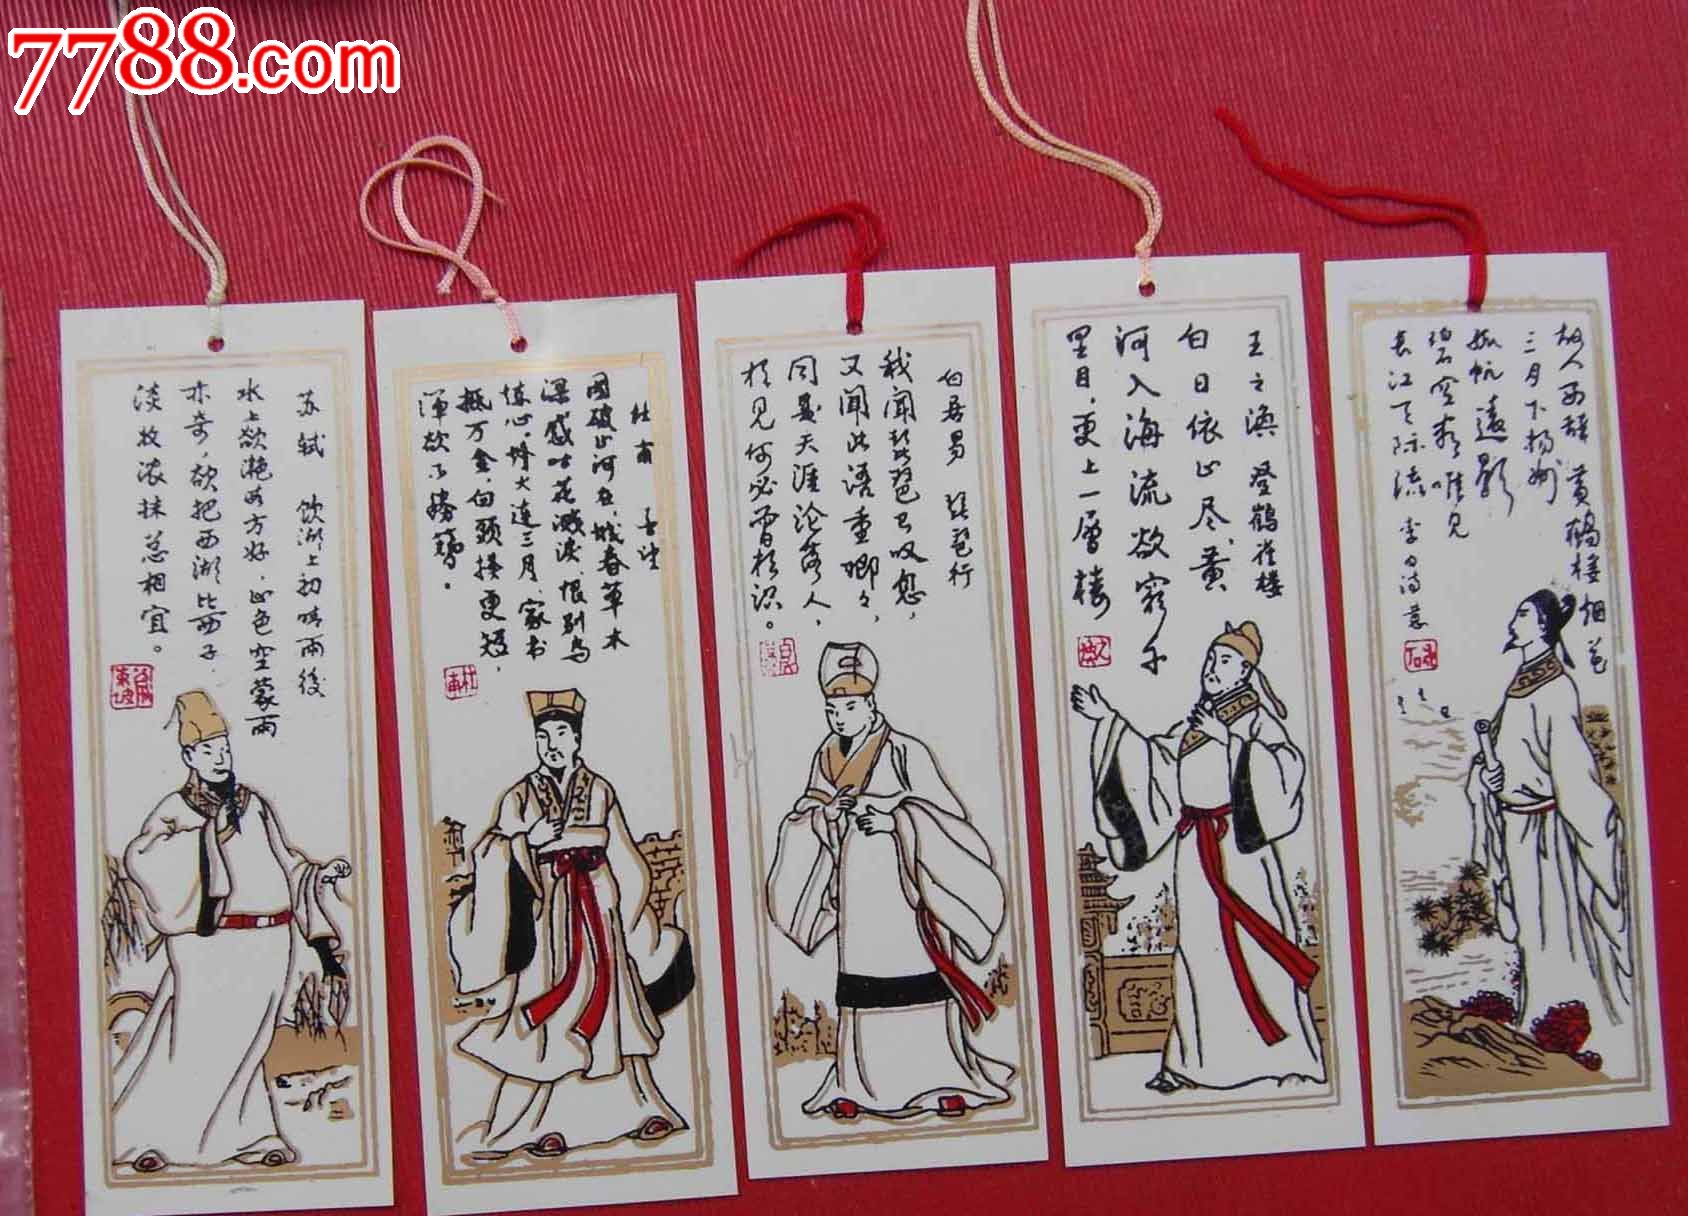 7788.com
苏轼 饮湖上初晴雨後
水光潋滟晴方好，山色空蒙雨
亦奇，欲把西湖比西子，
淡妆浓抹总相宜。
杜甫 春望
国破山河在，城春草木
深感时花溅泪，恨别鸟
惊心，烽火连三月，家书
抵万金，白頭搔更短，
渾欲不勝簪。
杜甫
白居易 琵琶行
我闻琵琶已叹息，
又闻此语重唧々，
同是天涯沦落人，
相见何必曾相识。
王之渙 登鹤雀楼
白日依山尽，黄
河入海流欲穷千
里目，更上一層楼
故人西辞黄鹤楼烟花
三月下扬州
孤帆遠影
碧空尽唯见
长江天际流 李白诗意